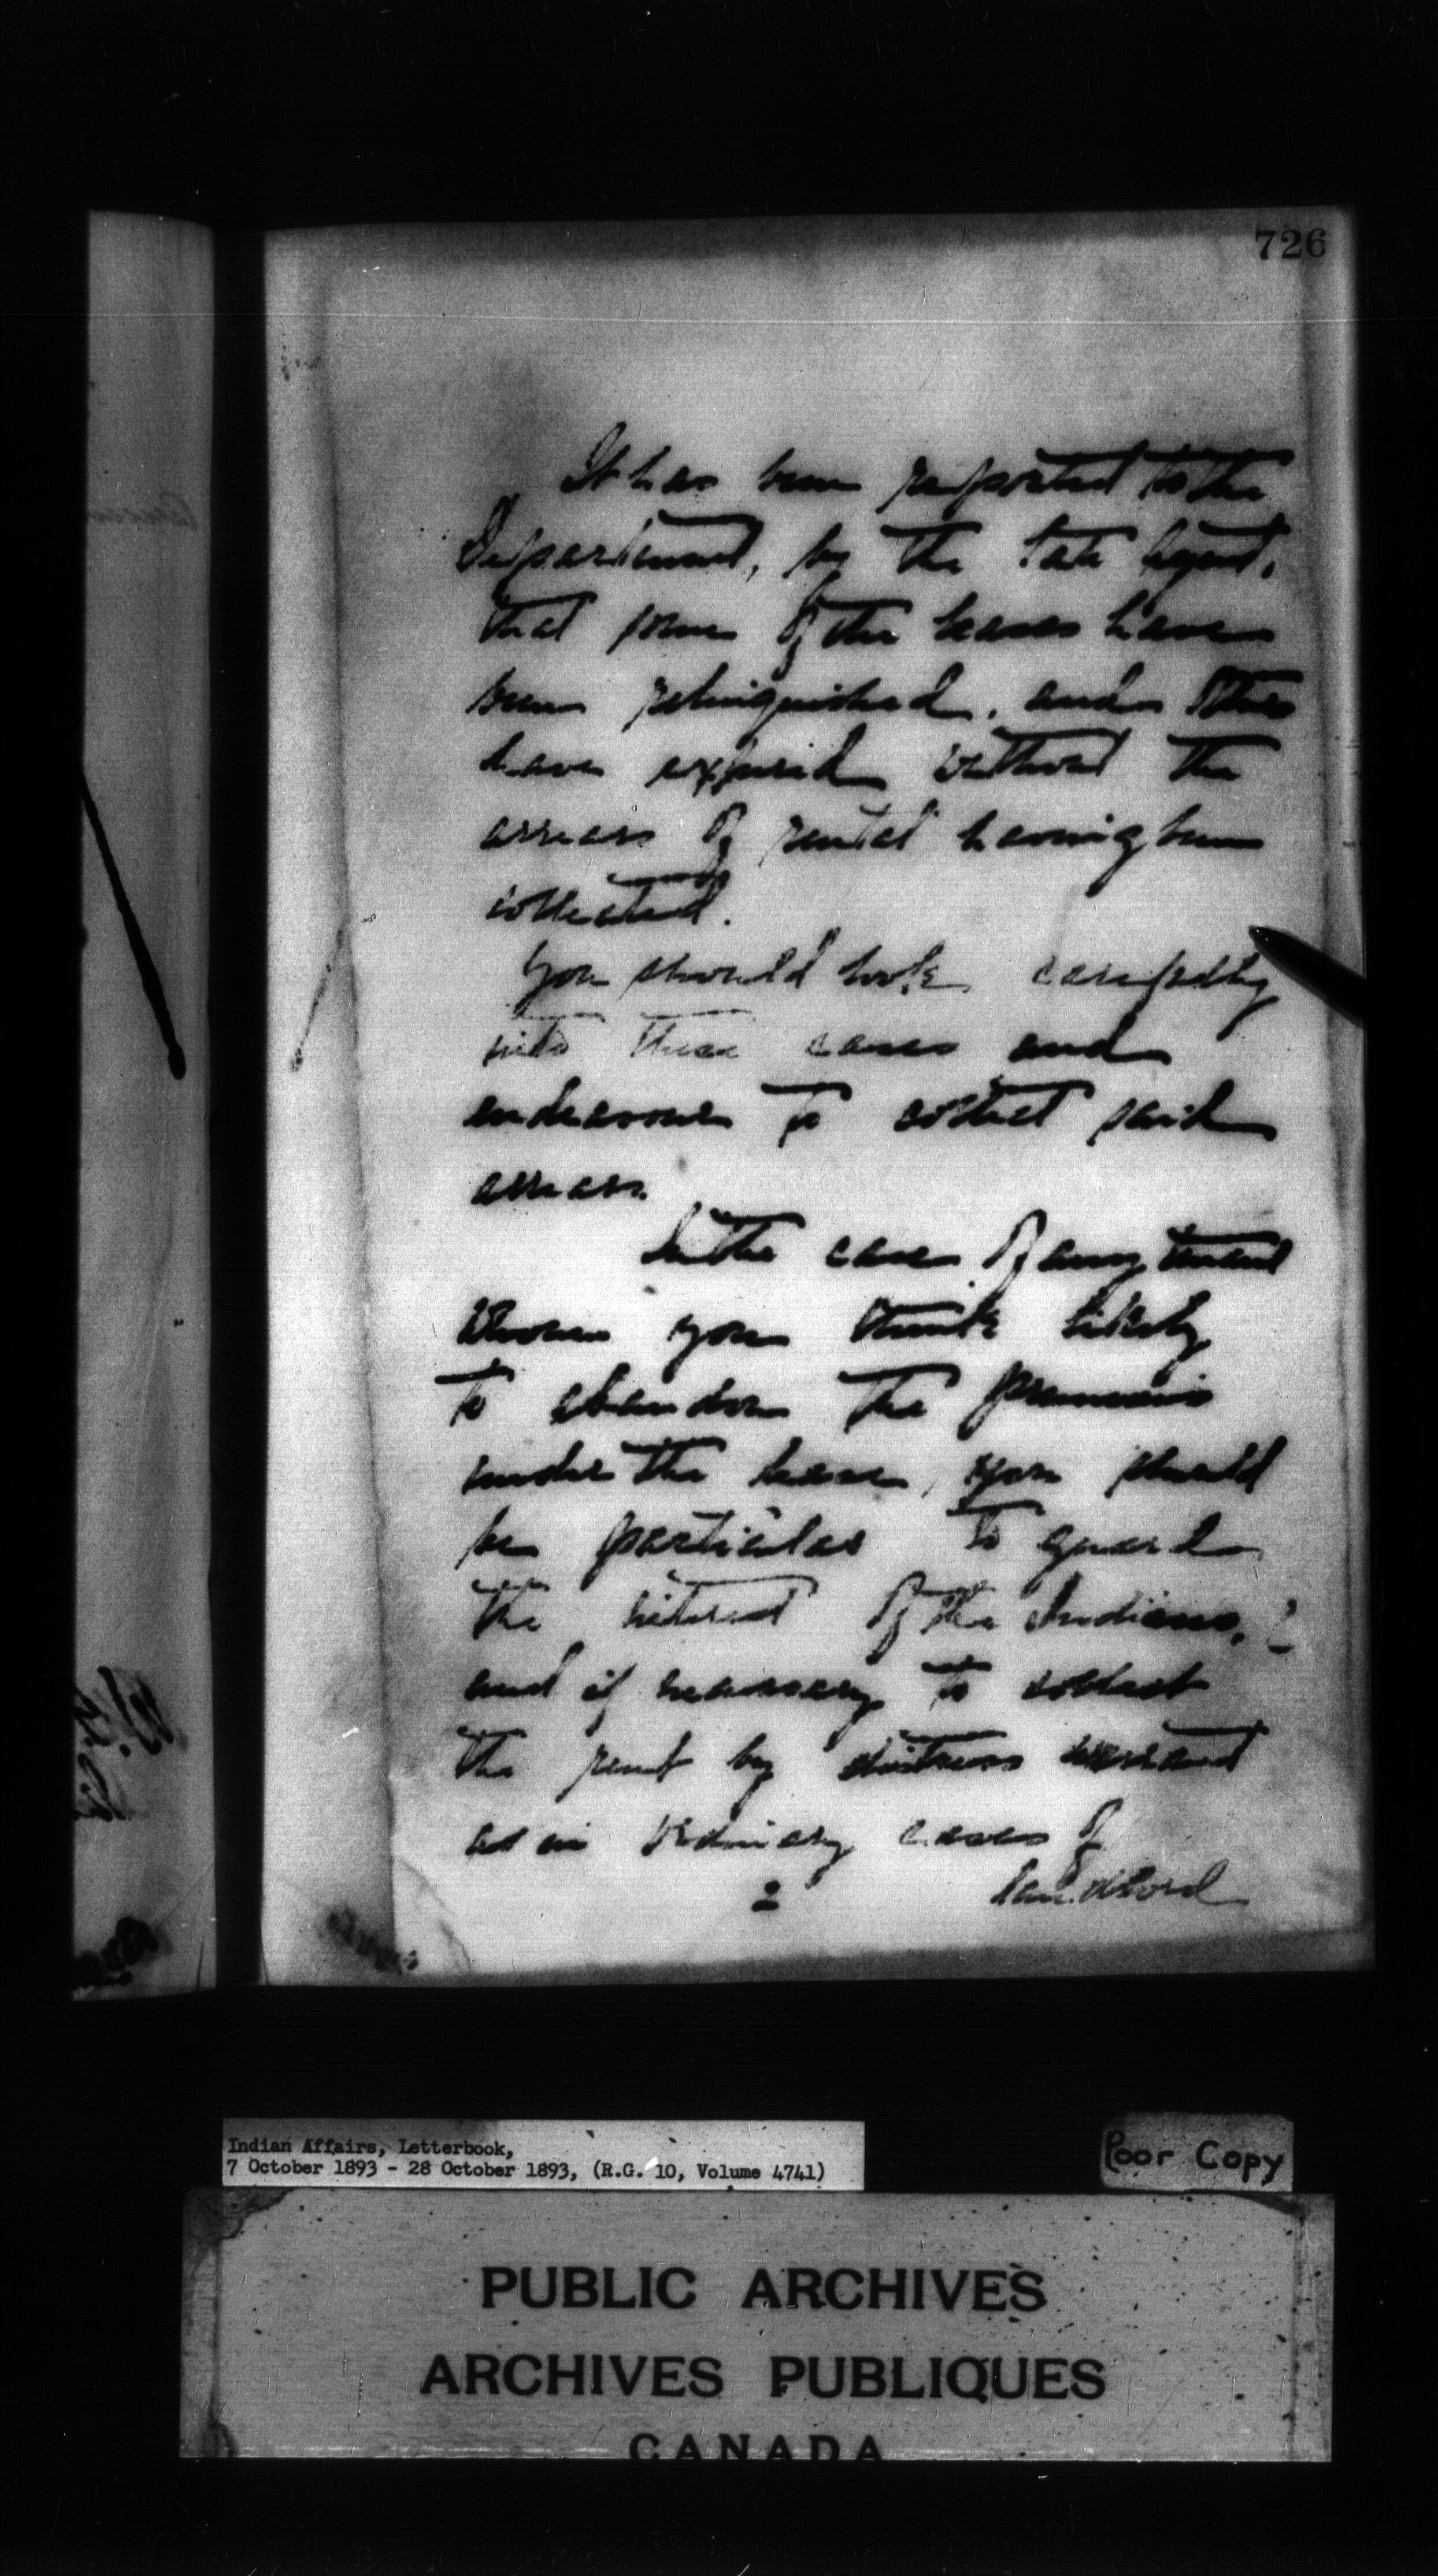 726
It has been reported to the
Department, by the late Agent,
that some of the leases have
been relinquished, and others
have expired without the
arrears of rental having been
collected.
You should look carefully
into these cases and
endeavour to collect said
arrears.
In the case of any tenant
whom you think likely
to abandon the premises
under the lease, you should
be particular to guard
the interest of the Indians,
and if necessary to collect
the rent by distress warrant
as in ordinary cases of
2 landlord
Indian Affairs, Letterbook,
7 October 1893 - 28 October 1893, (R.G. 10, Volume 4741)
Poor Copy
PUBLIC ARCHIVES
ARCHIVES PUBLIQUES
CANADA